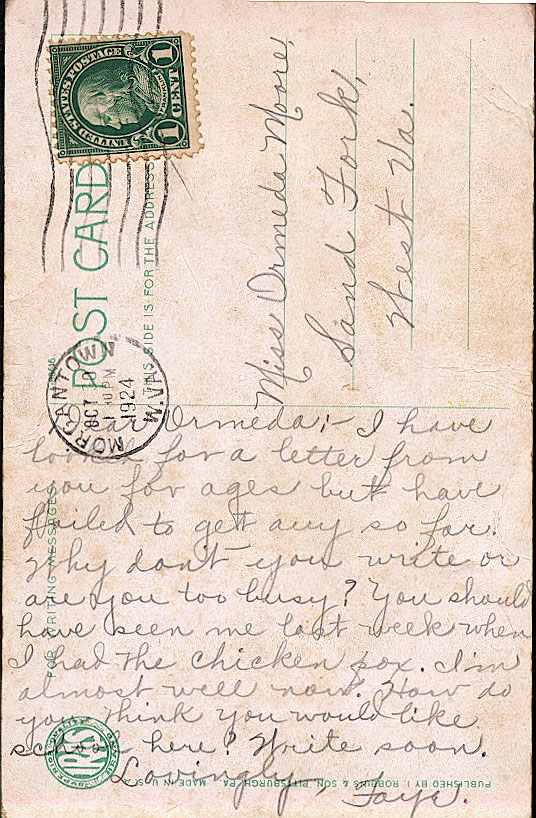 UNITED STATES POSTAGE
1 1
FRANKLIN
POST CARD
THIS SIDE IS FOR THE ADDRESS
MORGANTOWN
W.VA.
OCT
30 PM
1924
Miss Ormeda Moore,
Sand Fork,
West Va.
Dear Ormeda:- I have
looked for a letter from
you for ages but have
failed to get any so far.
Why don't you write or
are you too busy? You should
have seen me last week when
I had the chicken pox. I'm
almost well now. How do
you think you would like
school here? Write soon.
Lovingly,
Faye.
FOR WRITING MESSAGES
IRS
PUBLISHED BY I. ROBBINS & SON, PITTSBURGH, PA. MADE IN U. S. A.